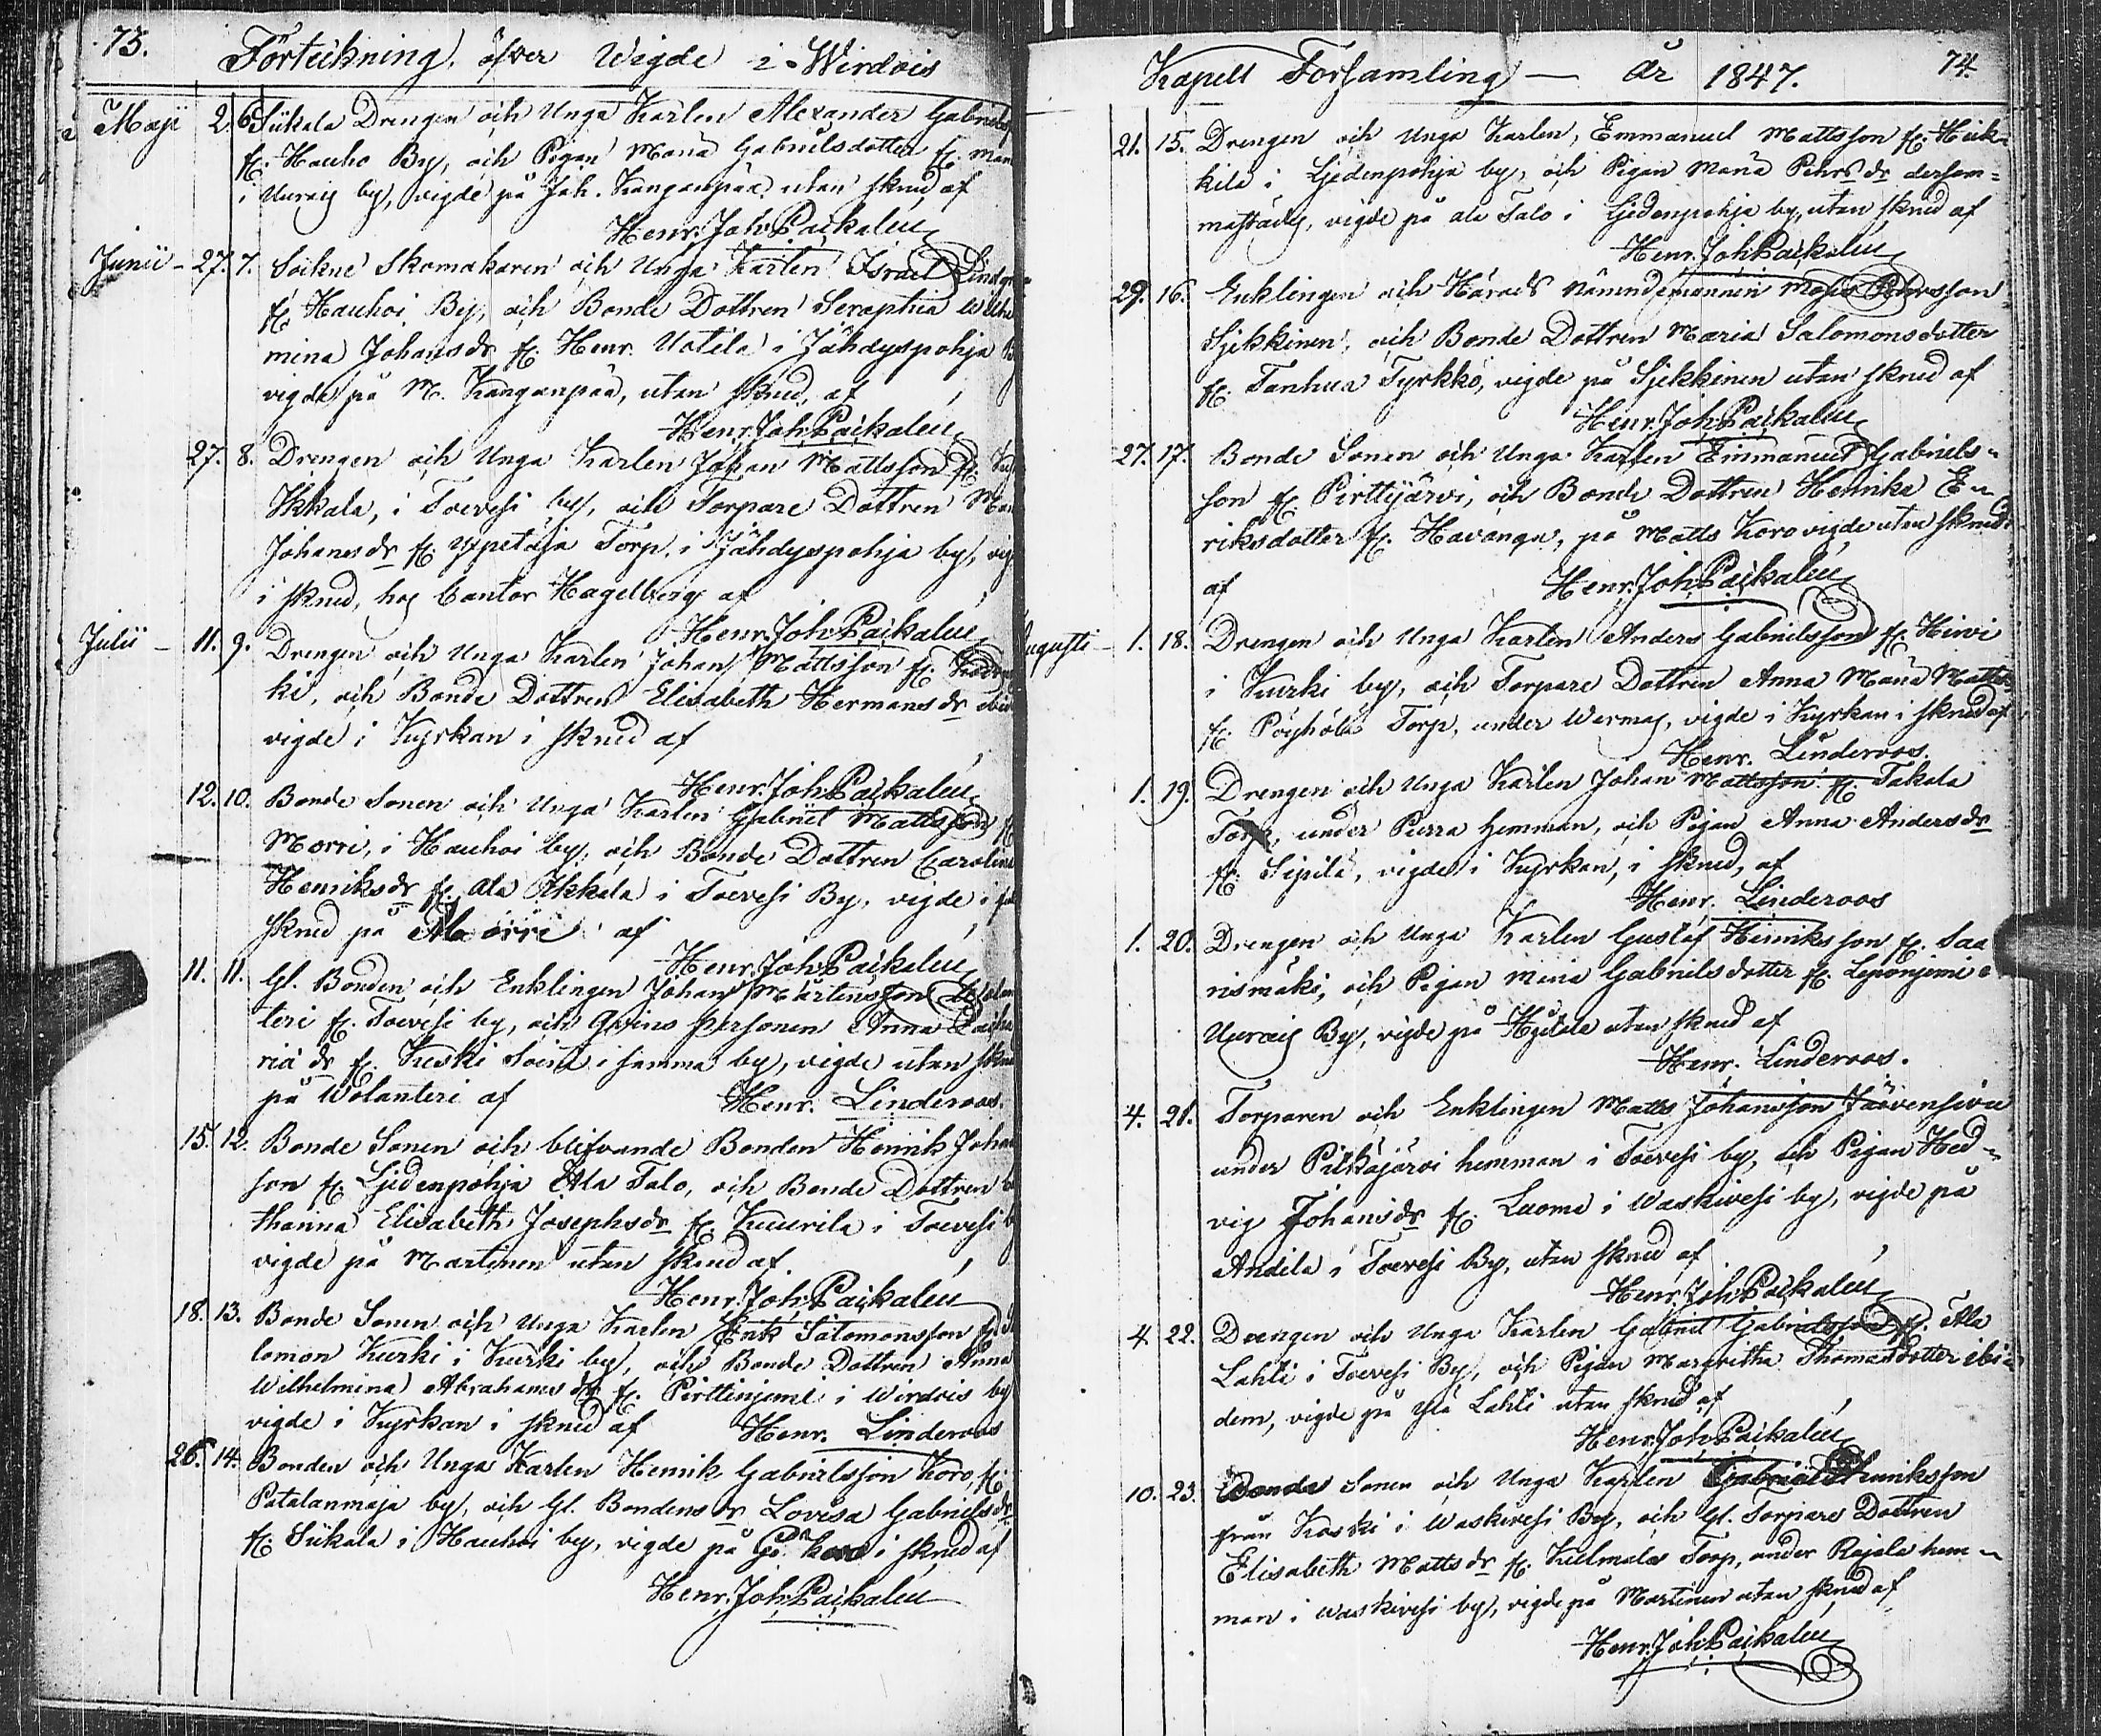 73.
Förteckning öfver Wigde i Wirdois
Maji 2. 6. Siikala Drengen och Unga Karlen Alexander Gabriels
fr. Hauho By, och Pigan Maria Gabrielsdotter fr.
i Uurais by, vigde på Joh. Kanganpää utan skrud af
Henr. Joh. Paikaleu
Junii - 27. 7. Sockne Skomakaren och Unga Karlen Israel Lindgr
fr. Hauhoi By, och Bonde Dottren Seraphia Wilhel
mina Johansdr fr. Henr. Uotila i Jähdyspohja
vigde på M. Kanganpää, utan skrud, af
Henr. Joh. Paikaleu
27. 8. Drengen och Unga Karlen Johan Mattsson fr.
Ikkala, i Toevesi by, och Torpare Dottren
Johansdr fr. Torp, i Jähdyspohja by, vig
i skrud, hos Cantor Hagelberg af
Henr. Joh. Paikaleu
Julii - 11. 9. Drengen och Unga Karlen Johan Mattsson fr.
ki, och Bonde Dottren Elisabeth Hermansdr
vigde i Kyrkan i skrud af
Henr. Joh. Paikaleu
12. 10. Bonde Sonen och Unga Karlen Gabriel Mattsson fr
Morri, i Hauhoi by, och Bonde Dottren Carolina
Henriksdr fr. Ala Ikkala i Toevesi By, vigde i
skrud på Morri af
Henr. Joh. Paikaleu
11. 11. Gl. Bonden och Enklingen Johan Mårtensson
teri fr. Toevesi by, och Qvins personen Anna
ria dr fr. Kuski Soini i samma by, vigde utan skrud
på Wolanteri af Henr. Linderoos.
15. 12. Bonde Sonen och blifvande Bonden Henrik Johan
son fr. Ljedenpohja Ala Talo, och Bonde Dottren
thanna Elisabeth Josephsdr fr. Kuurila i Toevesi
vigde på Martinen utan skrud af.
Henr. Joh. Paikaleu
18. 13. Bonde Sonen och Unga Karlen Erik Salomonsson
lomon Kurki i Kurki by, och Bonde Dottren Anna
Wilhelmina Abrahamsdr fr. Pirttinjemi i Wirdois by
vigde i Kyrkan i skrud af Henr. Linderoos
26. 14. Bonden och Unga Karlen Henrik Gabrielsson Koro, fr.
Patalanmaja by, och Gl. Bondens dr Lovisa Gabrielsdr
fr. Siikala i Hauhoi by, vigde på Koro i skrud af
Henr. Joh. Paikaleu
Kapell Församling — År 1847. 74.
21. 15. Drengen och Unga Karlen, Emmanuel Mattsson fr. Heik-
kilä i Ljedenpohja by, och Pigan Maria Pehrsdr dersam=
mastädes, vigde på ala Talo i Ljedenpohja by, utan skrud af
Henr. Joh. Paikaleu
29. 16. Enklingen och Härads Nämndemannen Pehrsson
Sjekkinen, och Bonde Dottren Maria Salomonsdotter
fr. Tanhua Tyrkkö, vigde på Sjekkinen utan skrud af
Henr. Joh. Paikaleu
27. 17. Bonde Sonen och Unga Karlen Emmanuel Gabriels-
son fr. Pirttijärvi, och Bonde Dottren Henrika E-
riksdotter fr. Havanga, på Matts Koro vigde utan skrud
af Henr. Joh. Paikaleu
Augusti - 1. 18. Drengen och Unga Karlen Anders Gabrielsson fr. Hirvi
i Kurki by, och Torpare Dottren Anna Maria Matts
fr. Pöyhölä Torp, under Wermas, vigde i Kyrkan i skrud af
Henr. Linderoos
1. 19. Drengen och Unga Karlen Johan Mattsson fr. Takala
Torp, under Purra hemman, och Pigan Anna Andersdr
fr. Sipilä, vigde i Kyrkan, i skrud, af
Henr. Linderoos
1. 20. Drengen och Unga Karlen Gustaf Henriksson fr. Saa
rismäki, och Pigan Mina Gabrielsdotter fr. Leponjemi
Uurais By, vigde på utan skrud af
Henr. Linderoos.
4. 21. Torparen och Enklingen Matts Johansson Järvensivu
under Pitkäjärvi hemman i Toevesi by, och Pigan Hed-
vig Johansdr fr. Luoma i Waskivesi by, vigde på
Andila i Toevesi By, utan skrud af
Henr. Joh. Paikaleu
4. 22. Drengen och Unga Karlen Gabriel Gabrielsson fr. Ala
Lahti i Toevesi By, och Pigan Margretha Thomasdotter ibi-
dem, vigde på Ylä Lahti utan skrud af
Henr. Joh. Paikaleu
10. 23. Bonde Sonen och Unga Karlen Gabriel Henriksson
från Koski i Waskivesi By, och Gl. Torpare Dottren
Elisabeth Mattsdr fr. Kulmala Torp, under Rajala hem-
man i Waskivesi by, vigde på Martinen utan skrud af
Henr. Joh. Paikaleu